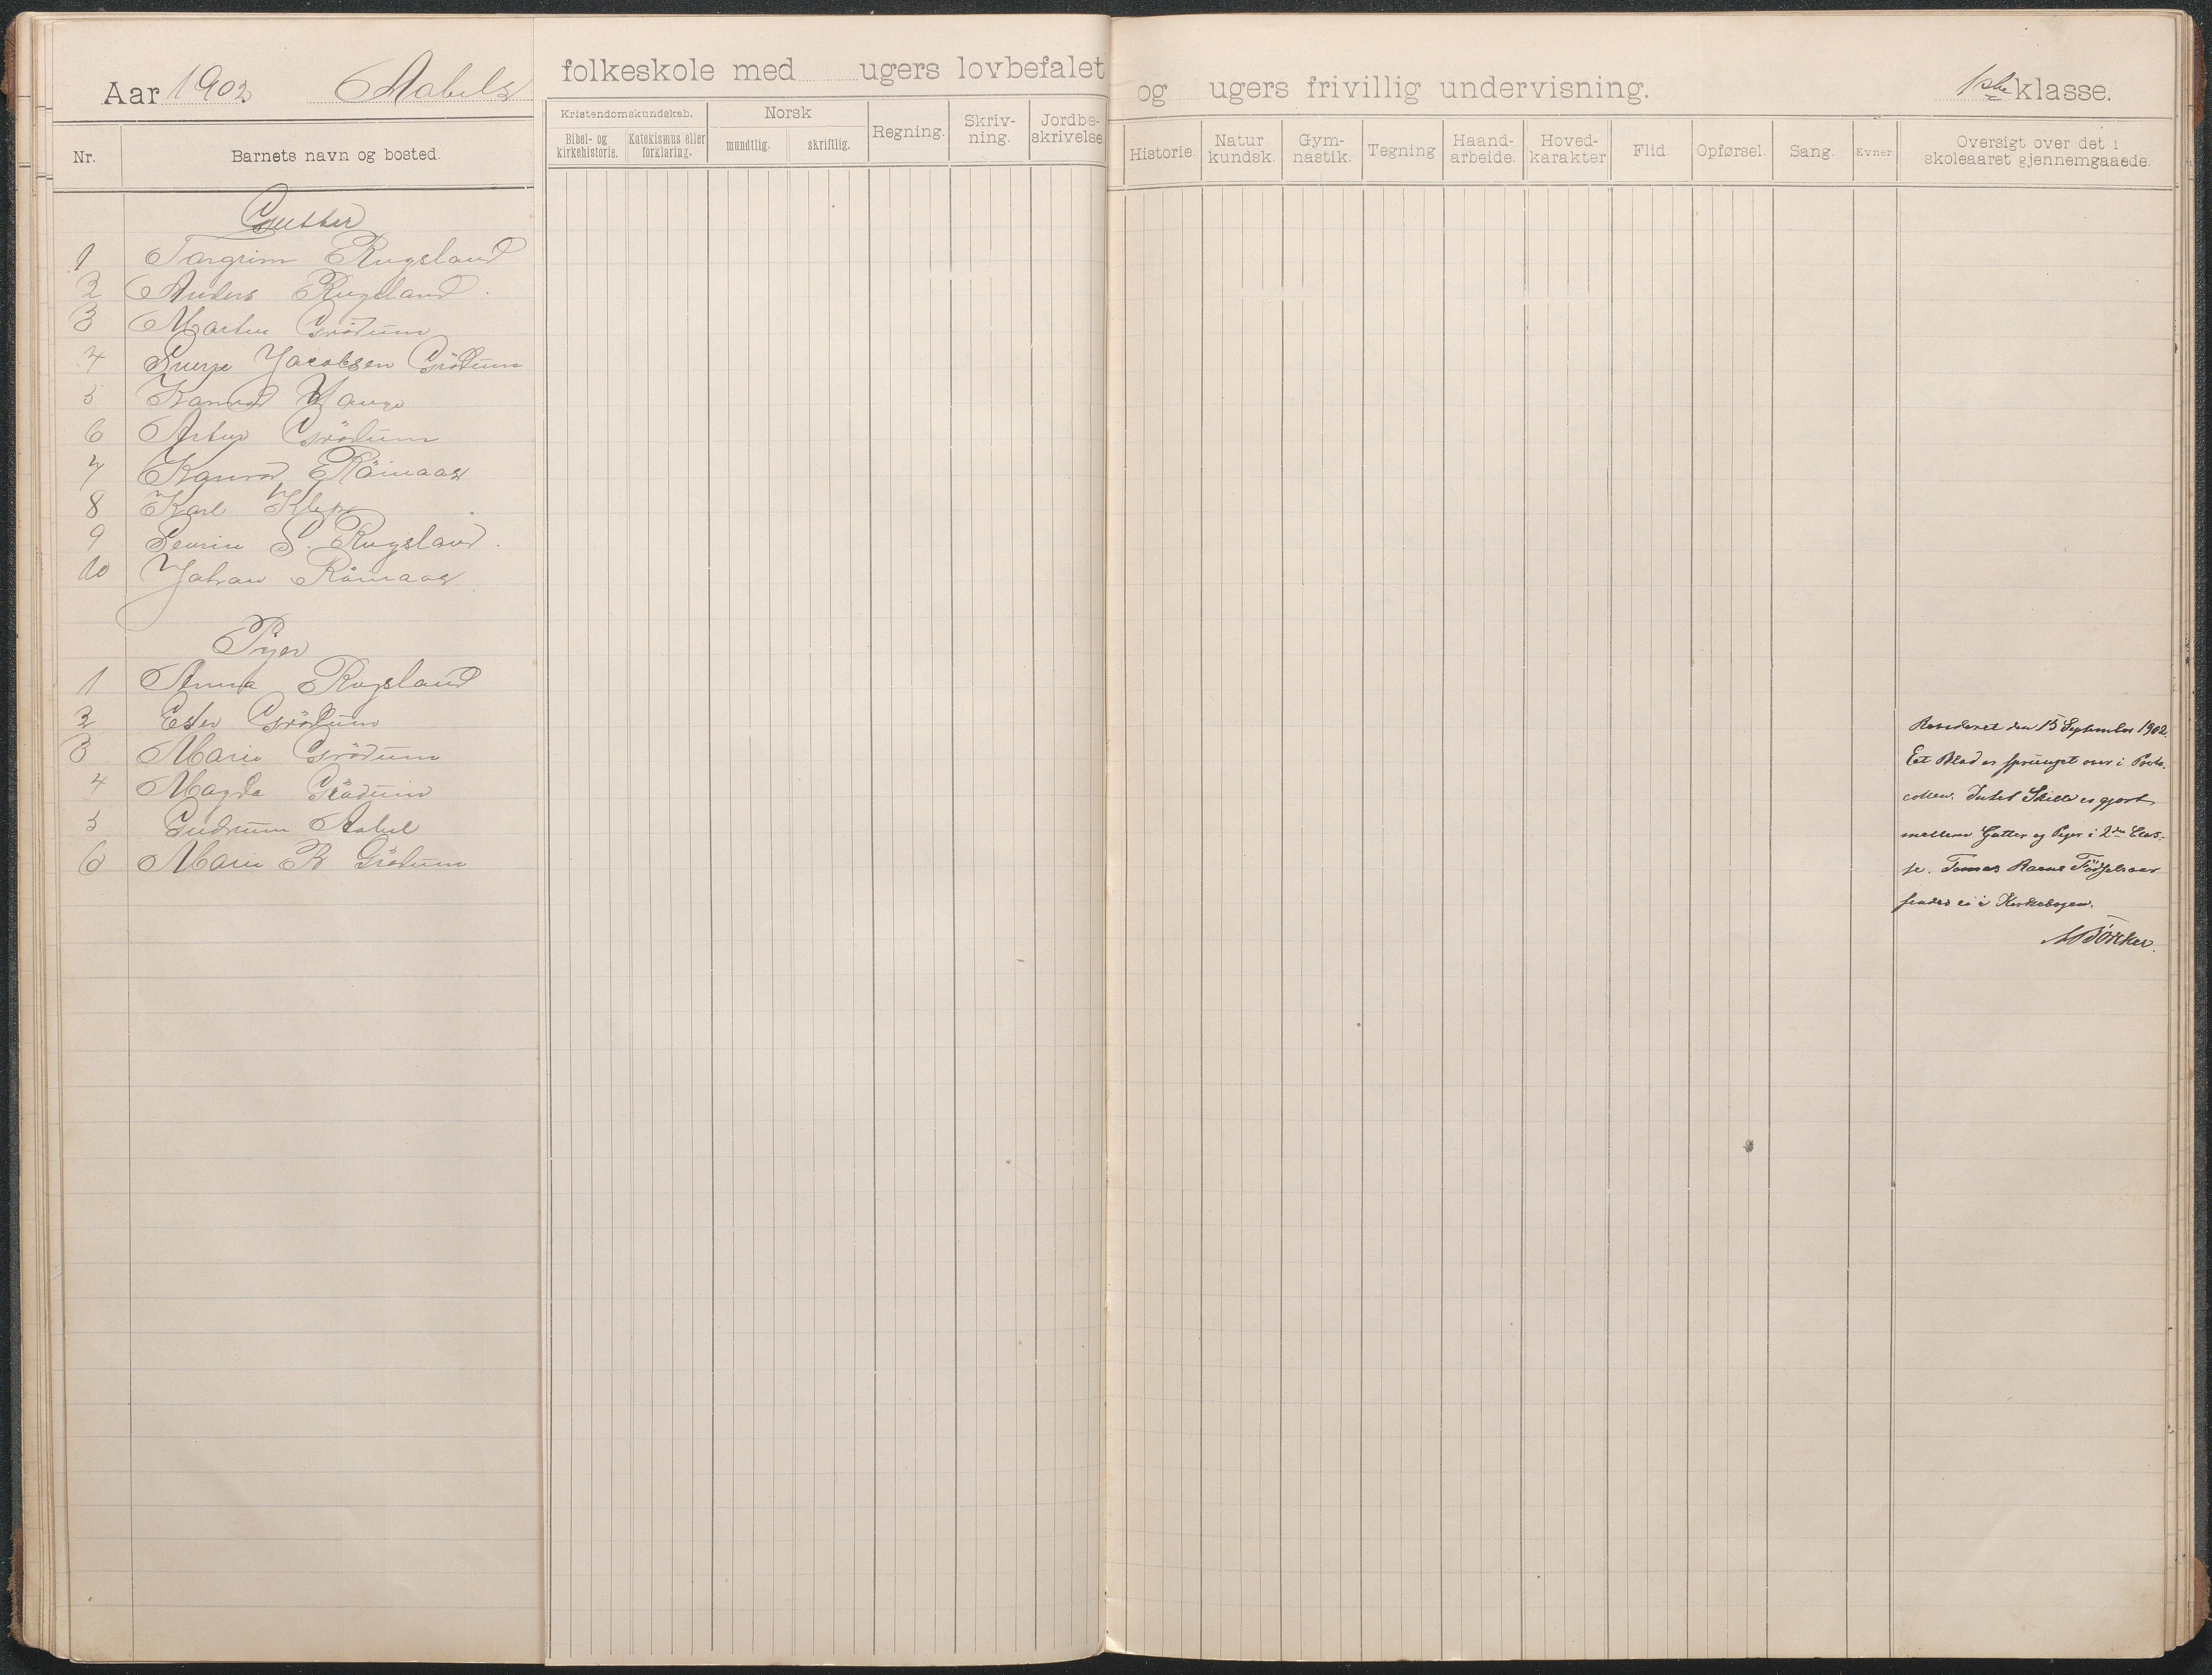 Aar 1902 Aabels folkeskole med ugers lovbefalet og ugers frivillig undervisning. 1ste klasse.
Nr.
Barnets navn og bosted.
Kristendomskundskab.
Bibel- og kirkehistorie.
Katekismus eller forklaring.
Norsk
mundtlig.
skriftlig.
Regning.
Skriv-
ning.
Jordbe-
skrivelse
Historie.
Natur
kundsk.
Gym-
nastik.
Tegning
Haand-
arbeide.
Hoved-
karakter
Flid.
Opførsel.
Sang.
Evner
Oversigt over det i
skoleaaret gjennemgaaede.
Gutter
1 Targrim Rugsland
2 Anders Rugsland.
3 Martin Grödum
4 Sverre Jacobsen Grödum
5 Konrad Hauge
6 Artur Grödum
7 Konrad Römaas
8 Karl Klep
9 Severin S. Rugsland.
10 Johan Römaas
Piger
1 Anna Rugsland
2 Ester Grödum
3 Marie Grödum
4 Magda Grödum
5 Gudrum Aabel
6 Marie R Grödum
Revideret den 15 September 1902.
Eet Blad er sprunget over i Proto-
collen. Intet Skille er gjort
mellem Gutter og Piger i 2den Clas-
se. Tomas Födselsaar
findes ei i Kirkebogen.